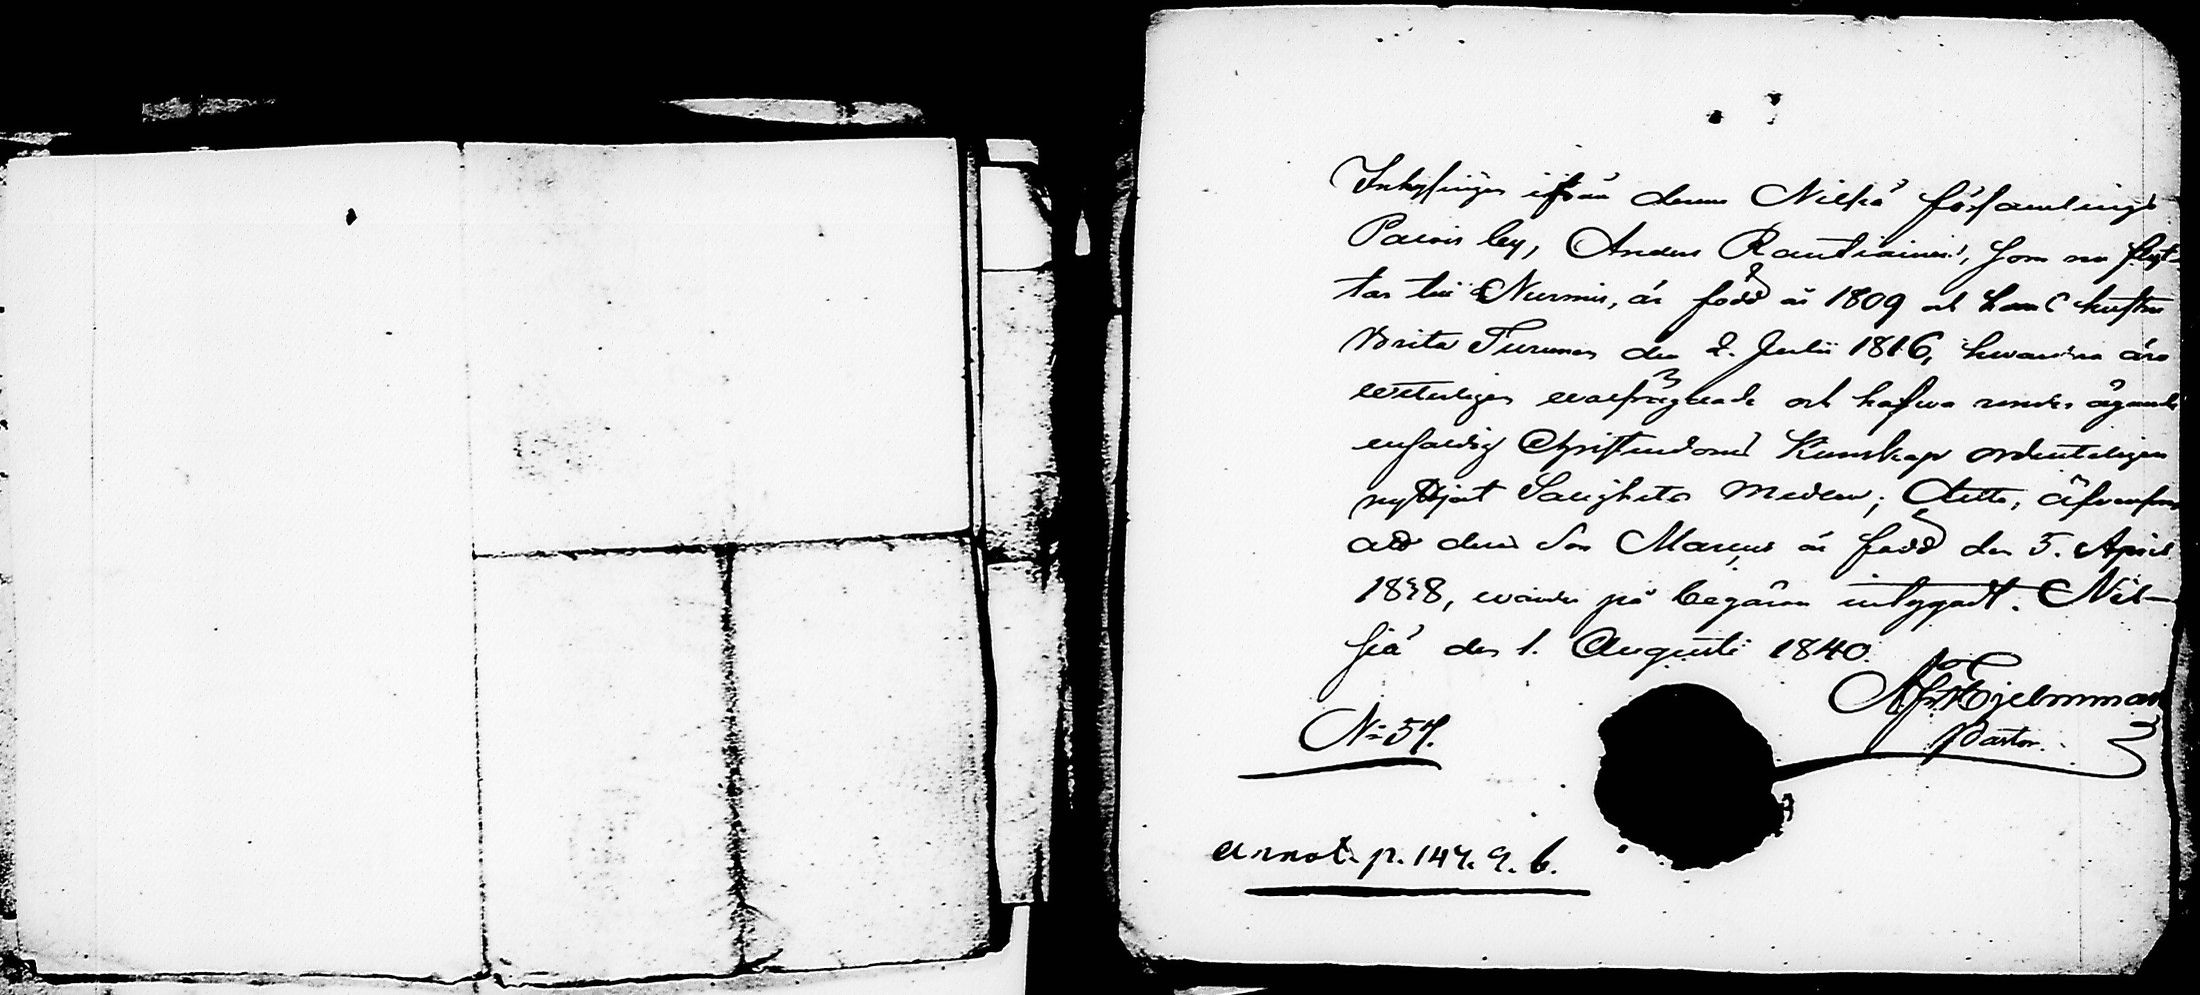 Inhysinges ifrån denne Nilsiä församlings
Palois by, Anders Rautiainen, som nu flyt-
tar till Nurmis, är född år 1809 och hans hustru
Brita Turunen den 2. Julii 1816, hwardera äro
witterligen oväfrägdade och hafwa under ägande
enfaldig Christendoms Kunskap ordenteligen
nyttjat Salighets Medlen; detta, äfvensom
att deras Son Marcus är född den 5. April
1838, warder på begäran intygadt. Nil-
siä den 1. Augusti 1840.
Hjelmman
Pastor.
No 57.
annot. p. 147. q. b.